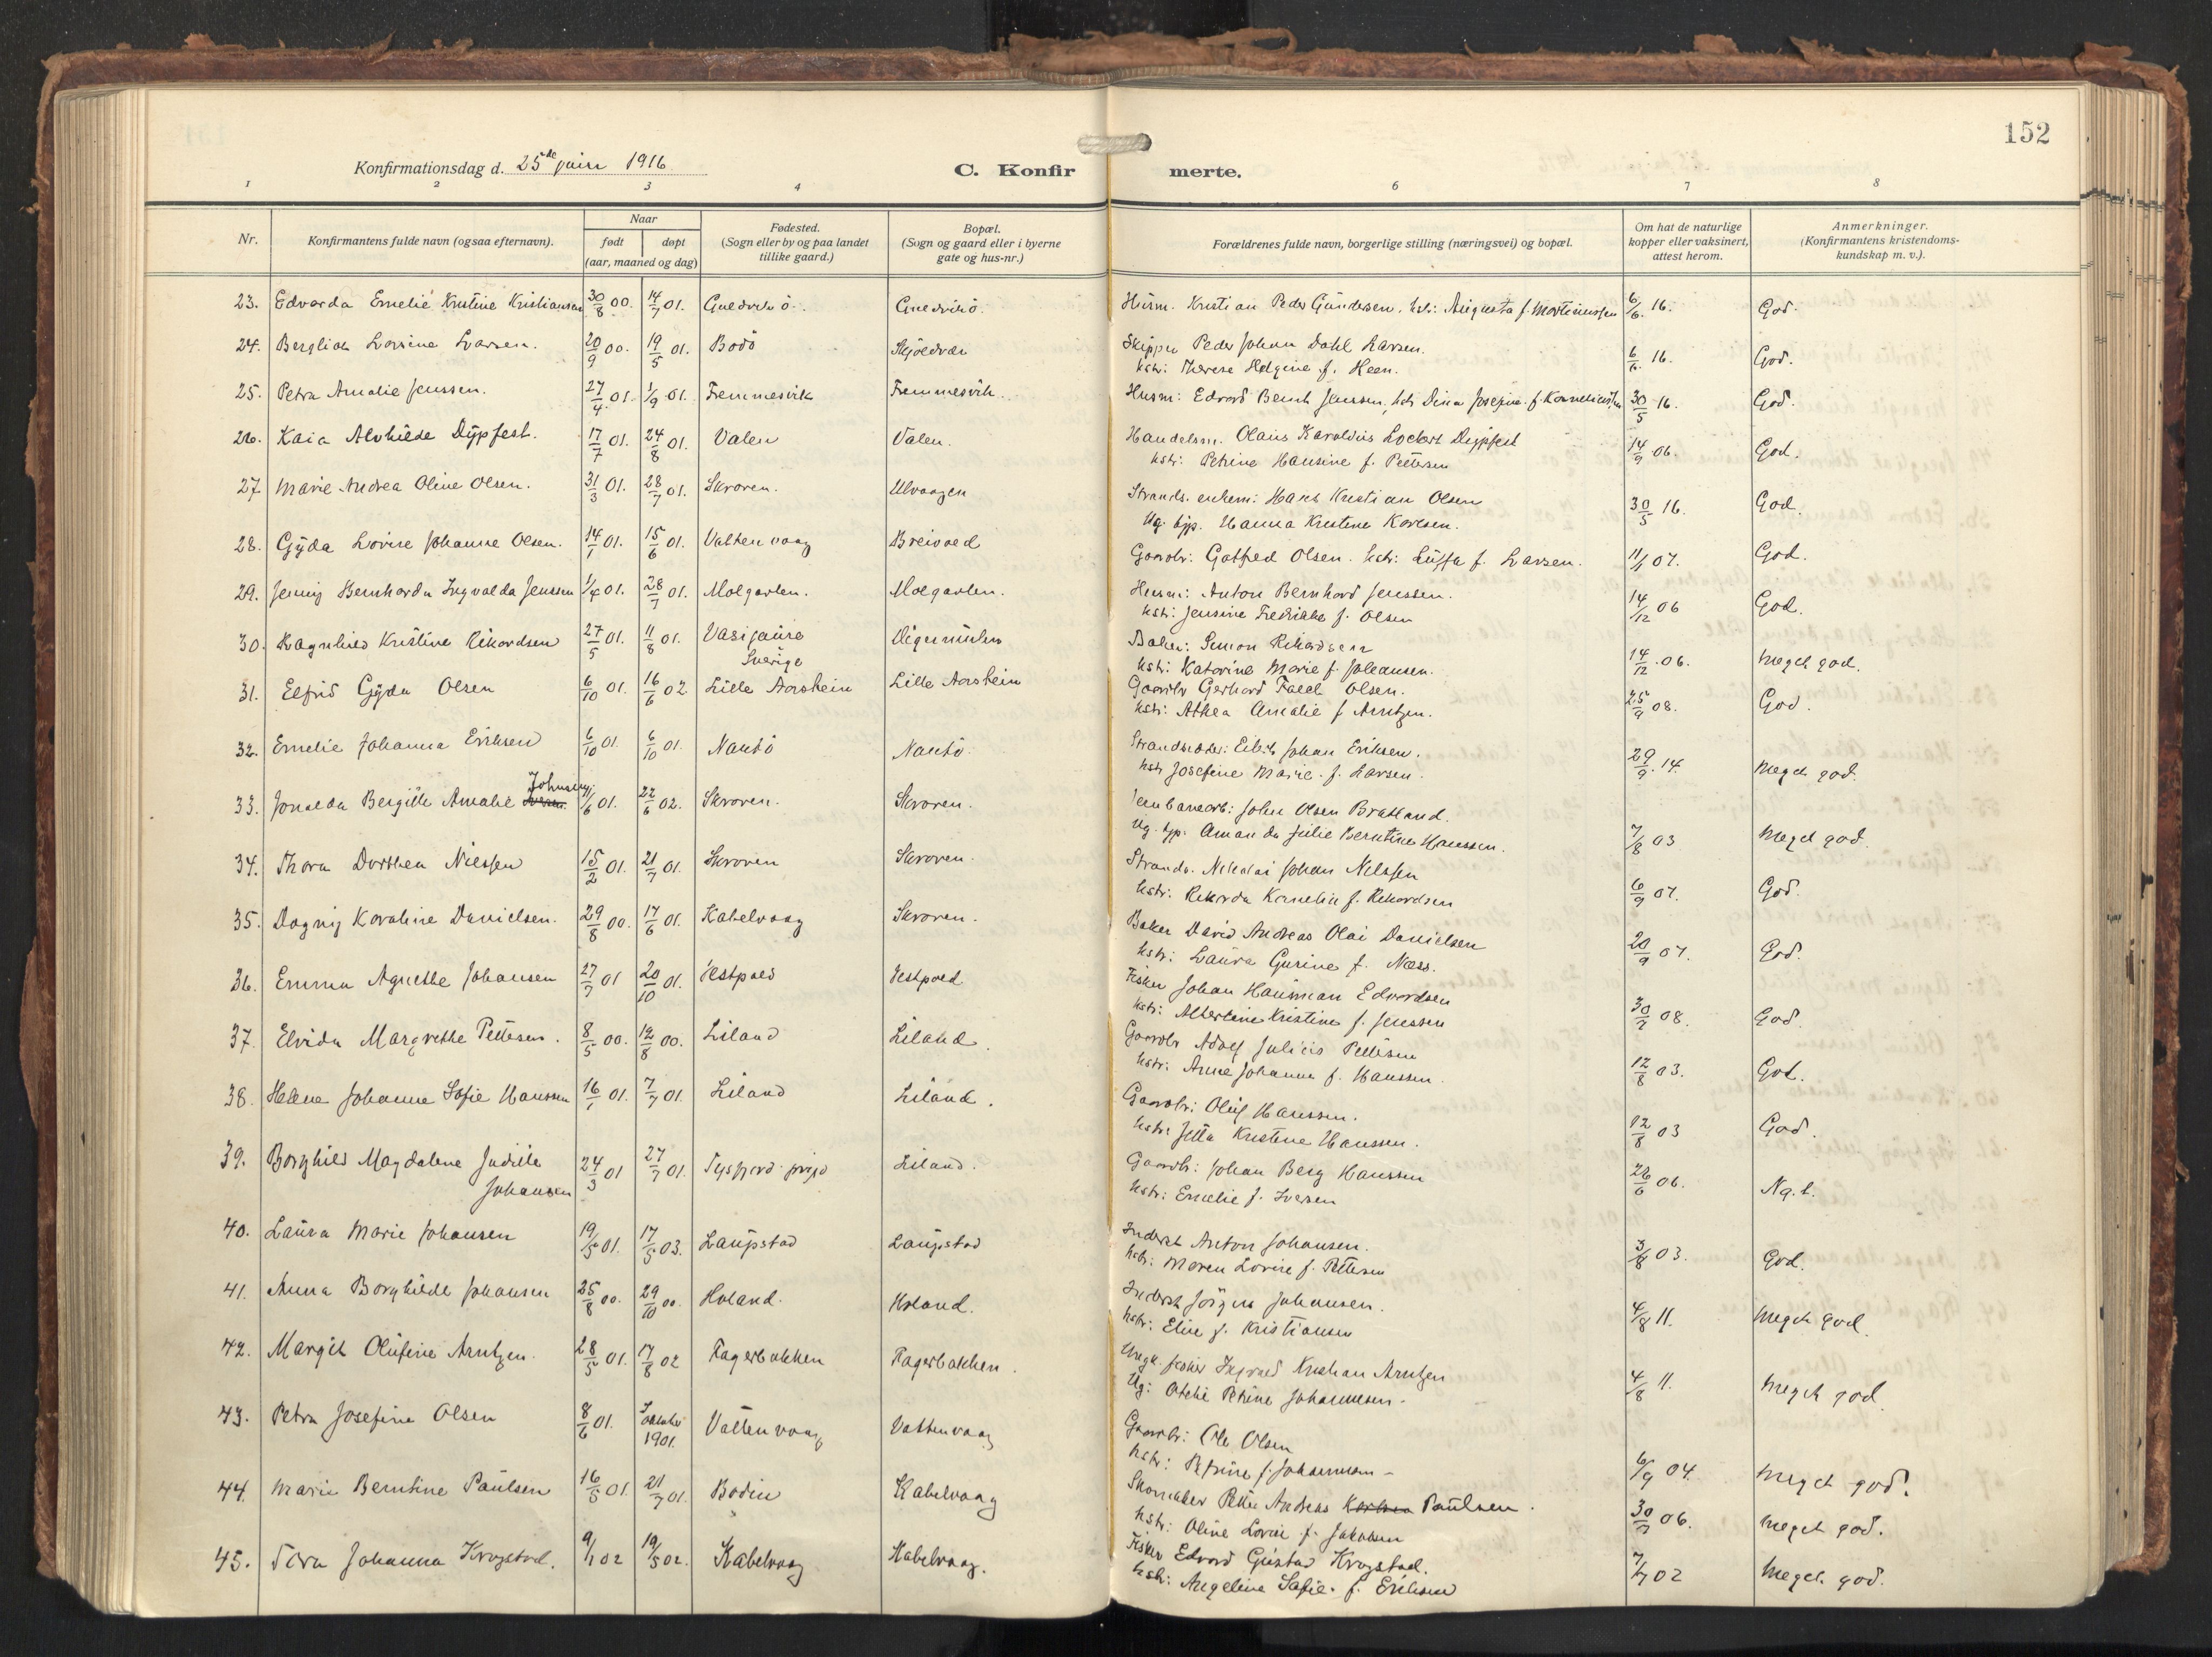 152
Konfirmationsdag d. 25de juni 1916
C. Konfir merte.
1 2 3 4 6 7 8
Nr.
Konfirmantens fulde navn (ogsaa efternavn).
Naar
født
døpt
(aar, maaned og dag)
Fødested.
(Sogn eller by og paa landet
tillike gaard.)
Bopæl.
(Sogn og gaard eller i byerne
gate og hus-nr.)
Forældrenes fulde navn, borgerlige stilling (næringsvei) og bopæl.
Om hat de naturlige
kopper eller vaksinert,
attest herom.
Anmerkninger.
(Konfirmantens kristendoms-
kundskap m. v.).
23. Edvarda Emelie Kristine Kristiansen 30/8 00. 14/7 01. Husm. Kristian Peder Gundersen. hstr: Augusta f. Mortinussen 6/6. 16. God.
24. Bergliot Lovine Larsen. 20/9 00. 19/5 01. Bodö Skjoldvær Skipper Peder Johan Dahl Larsen.
hstr: Therese Helgine f. Heen. 6/6. 16. God.
25. Petra Amalie Jenssen. 27/4. 01. 1/9 01. Femmesvik Femmesvik. Husm: Edvard Bernt Jenssen, hstr Dina Josefine f. Korneliussen 30/5 16. God.
26. Kaia Alvhilde Dypfest. 17/7 01. 24/8 01. Valen Valen. Handelsm. Olaus Karolius Lockert Dypfest
hstr: Petrine Hansine f. Pettersen 14/9 06. God.
27. Marie Andrea Oline Olsen. 31/3 01. 28/7 01. Skroven. Ulvaagen Strands. enkem: Hans Kristian Olsen
Ug. pp. Hanna Kristine Karlsen. 30/5 16. God.
28. Gyda Lovise Johanne Olsen. 14/1 01. 15/6 01. Vattenvaag Breivoed Gaardbr: Gotfred Olsen. hstr: Luffa f. Larsen. 11/1 07. God.
29. Jenny Bernharda Ingvalda Jenssen 1/4 01. 28/7 01. Molgavlen. Molgavlen. Husm: Anton Bernhard Jenssen.
hstr: Jensine Fredrikke f. Olsen 14/12 06 God.
30. Ragnhild Kristine Rikardsen 27/5 01. 11/8 01. Vasijaure
Sverige
Digermulen Baker: Simon Rikardsen
hstr: Katarine Marie f. Johansen. 14/12 06. Meget god.
31. Elfrid Gyda Olsen 6/10 01. 16/6 02. Lille Aarstein Lille Aarstein Gaardbr Gerhard Falck Olsen.
hstr: Athea Amalie f Arntzen. 25/9 08. God.
32. Emelie Johanna Eriksen 6/10 01. 6/10 01. Nautö Nautö. Johan Eriksen.
hstr Josefine Marie. f. Larsen. 29/9. 14. Meget god.
33. Jonalda Bergitte Amalie Johnsen 01. 22/6 02. Skroven. Skroven. Jernbanearb: Johan Olsen Bratland.
Ug. pp. Amanda Julie Berntine Hanssen. 7/8 03 Meget god.
34. Thora Dorthea Nielsen 15/2 01. 21/7 01. Skroven Skroven. Strands. Nikolai Johan Nilssen
hstr: Rikarda Kornelia f. Rikardsen 6/9 07. God.
35. Dagny Karoline Danielsen. 29/8 00. 17/6 01. Kabelvaag Skroven. Baker David Andreas Olai Danielsen
hstr: Laura Gurine f. Næss. 20/9 07. God.
36. Emma Agnethe Johansen 27/7 01 20/10 01. Vestpold Vestpold Fisker Johan Hausman Edvardsen
hstr: Albertine Kristine f. Jenssen 30/7 08. God.
37. Elvida Margrethe Pettersen. 8/5 00. 12/8 00. Liland Liland. Gaardbr Adolf Julius Pettersen
hstr: Anne Johanna f. Hanssen. 12/8 03. God.
38. Helene Johanne Sofie Hanssen 16/1 01. 7/7 01. Liland Liland. Gaardbr: Oluf Hanssen.
hstr: Jetta Kristine Hanssen. 12/8 03 God.
39. Borghild Magdalene Judille
Johansen 24/3 01 27/7 01. Liland. Gaardbr: Johan Berg Hanssen
hstr: Emelie f. Iversen 26/6 06. Ng. t.
40. Laura Marie Johansen 19/5 01. 17/5 03. Laupstad Laupstad Inderst Anton Johansen.
hstr: Maren Lovise f. Pettersen 3/8 03. God.
41. Anna Borghilde Johansen 25/8 00. 29/10 00. Holand. Holand. Inderst Jörgen Johansen.
hstr: Elise f. Kristiansen 4/8 11. Meget god.
42. Margit Olufine Arntzen. 28/5 01. 17/8 02 Fagerbakken Fagerbakken. Ungk. fisker Ingvald Kristian Arntzen
Ug: Otelie Petrine Johannesen. 4/8 11. Meget god.
43. Petra Josefine Olsen 8/6 01.
1901. Vattenvaag Vattenvaag Gaardbr: Ole Olsen
hstr: Petrine f. Johannesen 6/9 04. Meget god.
44. Marie Berntine Paulsen 16/5 01. 21/7 01. Bodin Kabelvaag Skomaker Peter Andreas Karlsen Paulsen.
hstr: Oline Lovise f. Jakobsen 30/7 06. Meget god.
45. Tora Johanna Krogstad. 9/1 02 19/5 02. Kabelvaag Kabelvaag. Fisker Edvard Gustav Krogstad.
hstr: Angeline Sofie f. Eriksen 7/7 02 Meget god.